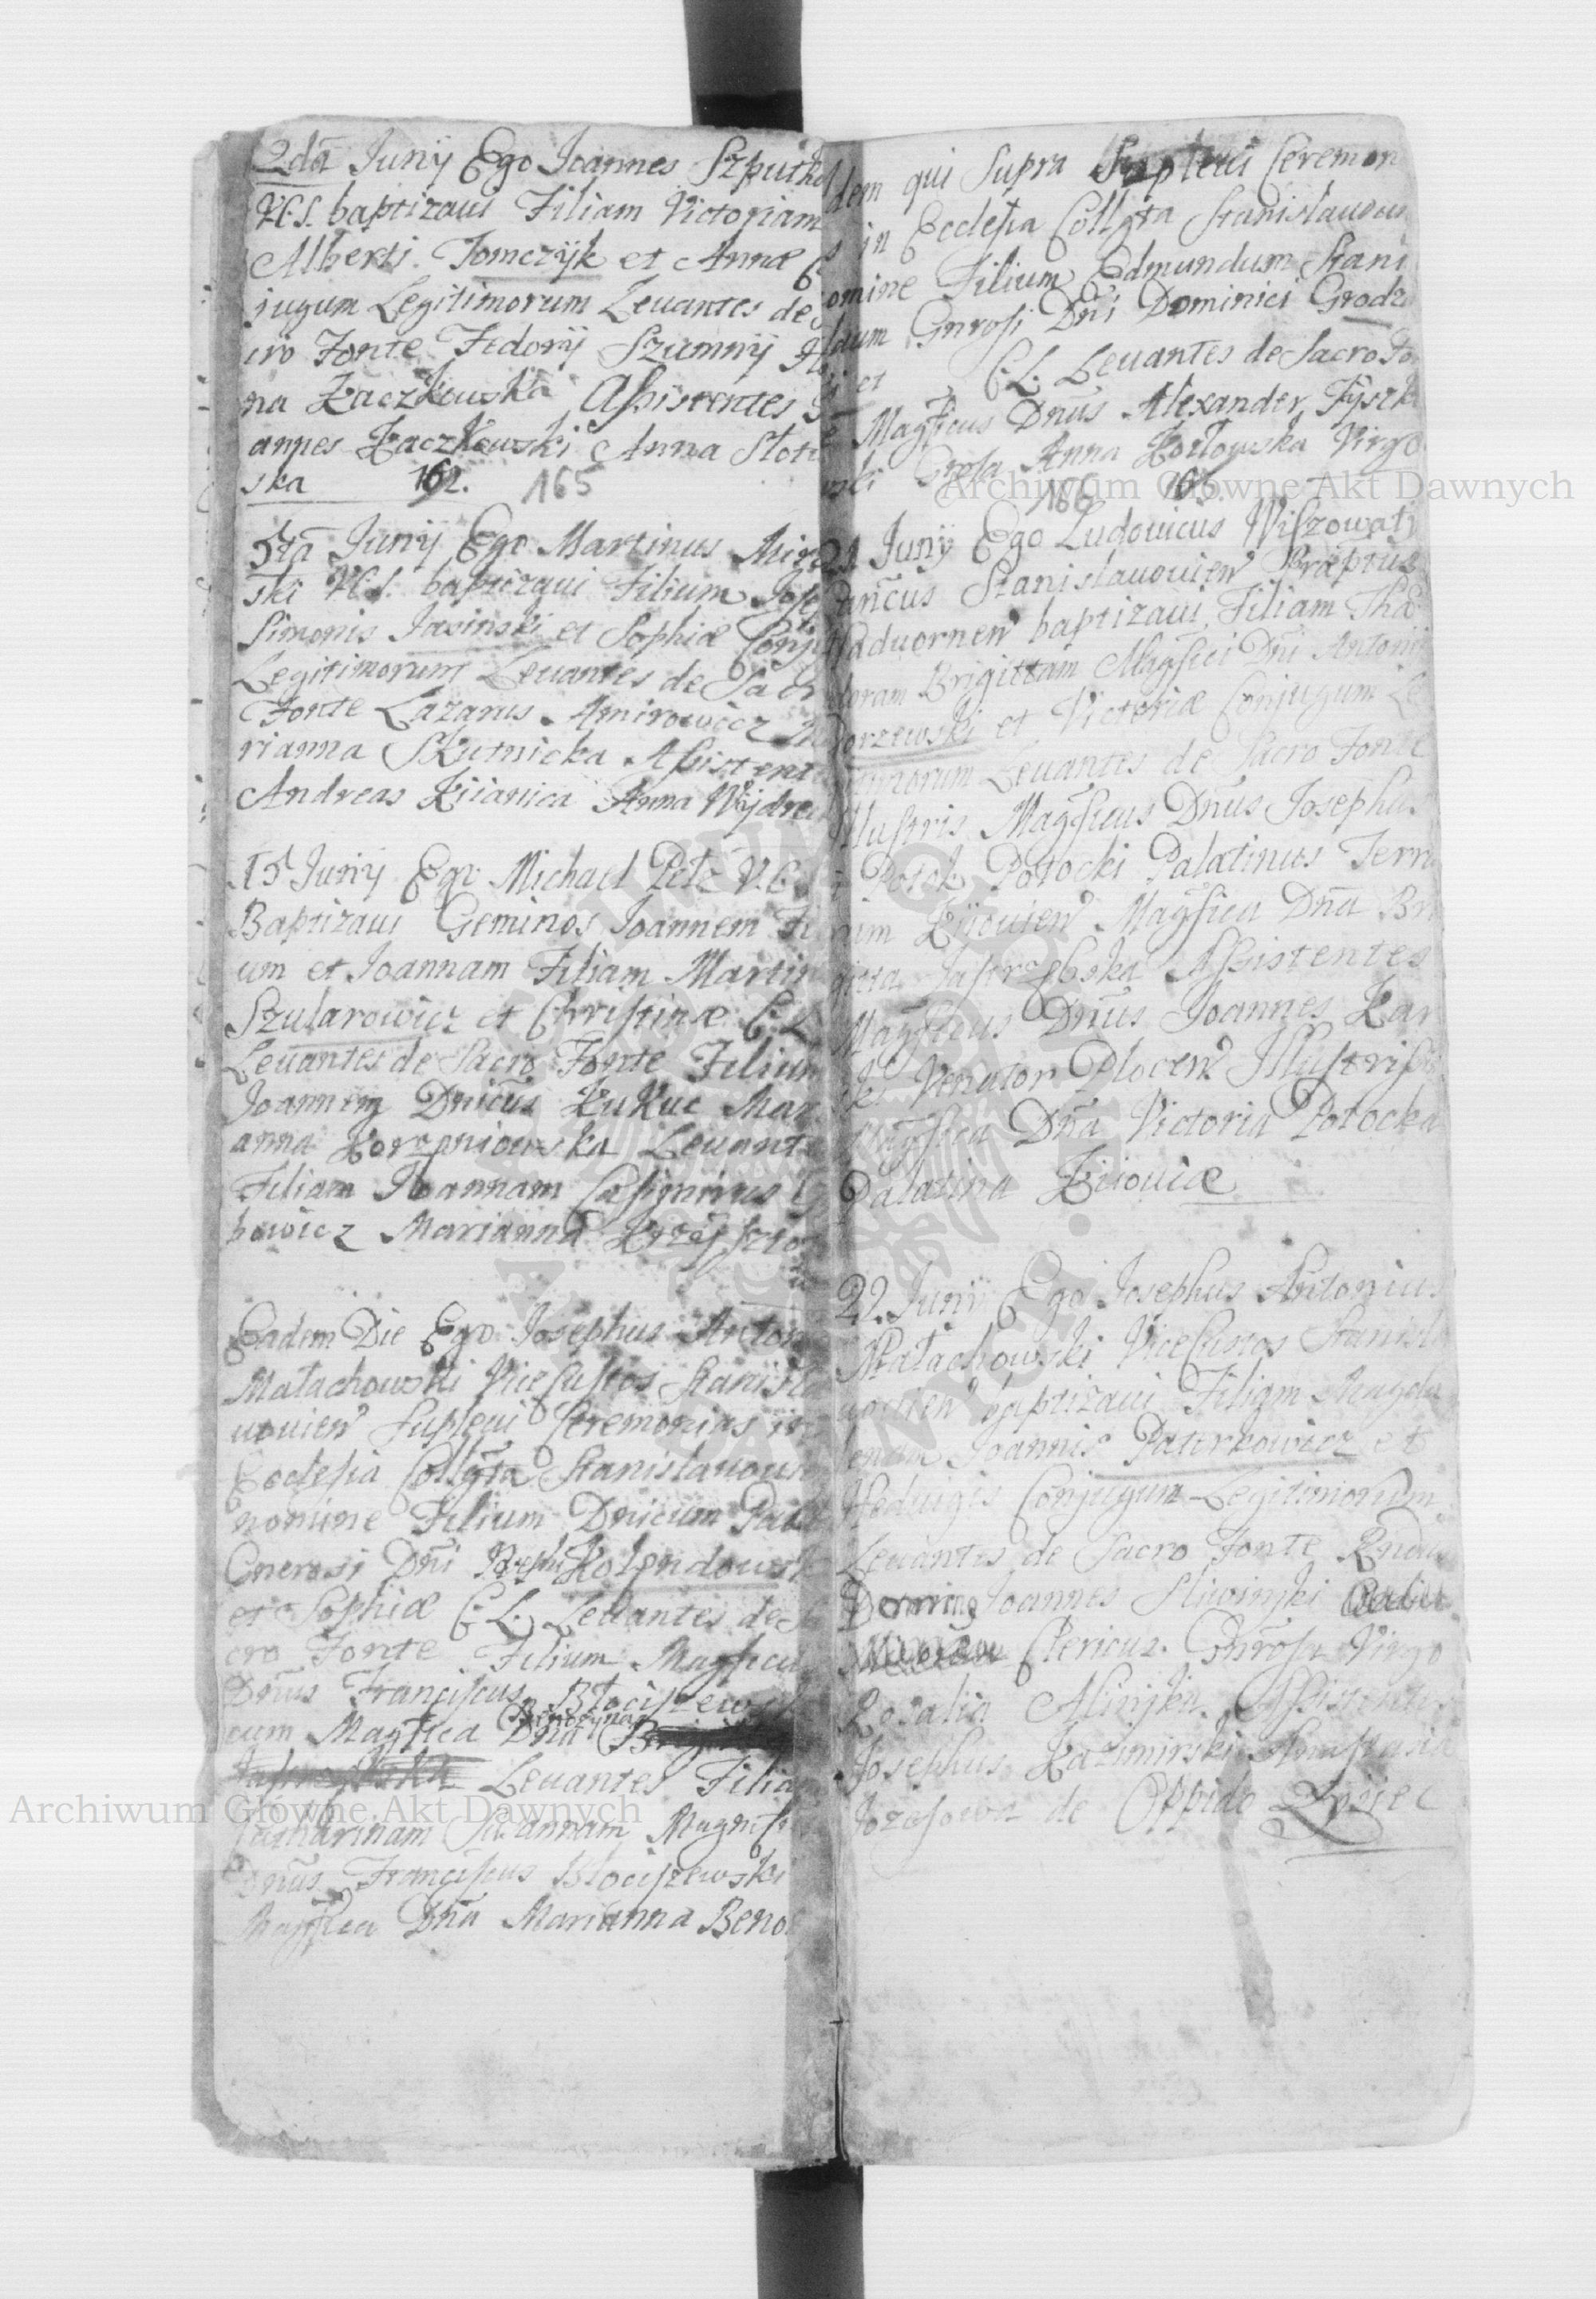 2da Junij Ego Joannes Szputko
V.C.S. baptizaui Filiam Victoriam
Alberti Tomczÿk et Annæ C
jugum Legitimorum Leuantes de
cro Fonte Fedorij Szumnÿ
na Łaczkowska Assistentes
annes Łaczkowski Anna Słot
ska 162. 165
5ta Junij Ego Martinus Miro
ski V.C.S. baptizaui Filium Jose
Simonis Jasinski et Sophiæ Conju
Legitimorum Leuantes de Sacr
Fonte Lazarus Amirowicz Ma
rianna Skutnicka Assistente
Andreas Kiianica Anna Wÿdre
15 Junij Ego Michael Pele V.C.
Baptizaui Geminos Joannem Fi
um et Joannam Filiam Martin
Szularowicz et Christinæ C. L
Leuantes de Sacro Fonte Filium
Joannem Dnicus Kukuc Mar
anna Korzeniowska Leuante
Filiam Joannam Casimirus
bowicz Marianna Krzÿszto
Eadem Die Ego Josephus Anton
Małachowski ViceCustos Stanisla
uouien Supleui Ceremonias in
Ecclesia Collgta Stanislauouie
nomine Filium Dnicum Paul
Generosi Dni Josephi Kolendowsk
et Sophiæ C. L. Leuantes de S
cro Fonte Filium Magficu
Dnus Franciscus Błociszews
cum Magfica Dna
Leuantes Filia
Catharinam Joannam Magnifi
Dnus Franciscus Błociszewski
Magfica Dna Marianna Beno
dem qui Supra Supleui Ceremon
in Ecclesia Collgta Stanislauou
omine Filium Edmundum Stani
laum Gnrosi Dni Dominici Grodz
et C. L. Leuantes de Sacro Fo
Magficus Dnus Alexander Tÿszk
ski Grosa Anna Kozłowska Virgo
166
21 Junij Ego Ludouicus Wiszowatÿ
Cancus Stanislauouien Præptus
Naduornen baptizaui Filiam Thæ
doram Brigittam Magfici Dni Antonij
orzewski et Victoriæ Conjugum Le
imorum Leuantes de Sacro Fonte
Illustris Magficus Dnus Josephus
Potok Potocki Palatinus Terra
rum Kijouien Magfica Dna Bri
gitta Jastrzębska Assistentes
Magficus Dnus Joannes Kar
ski Venator Plocen Illustriss
Magfica Dna Victoria Potocka
Palatina Kijouiæ
22 Junij Ego Josephus Antonius
Małachowski ViceCustos Stanisla
uouien baptizaui Filiam Magda
lenam Joannis Paterkowicz et
Heduigis Conjugum Legitimorum
Leuantes de Sacro Fonte Rndus
Joannes Sliwinski
Clericus. Gnrosa Virgo
Rosalia Assistentes
Josephus Kazimirski Anastasia
de Oppido Łysiec
Archiwum Główne Akt Dawnych
Archiwum Główne Akt Dawnych